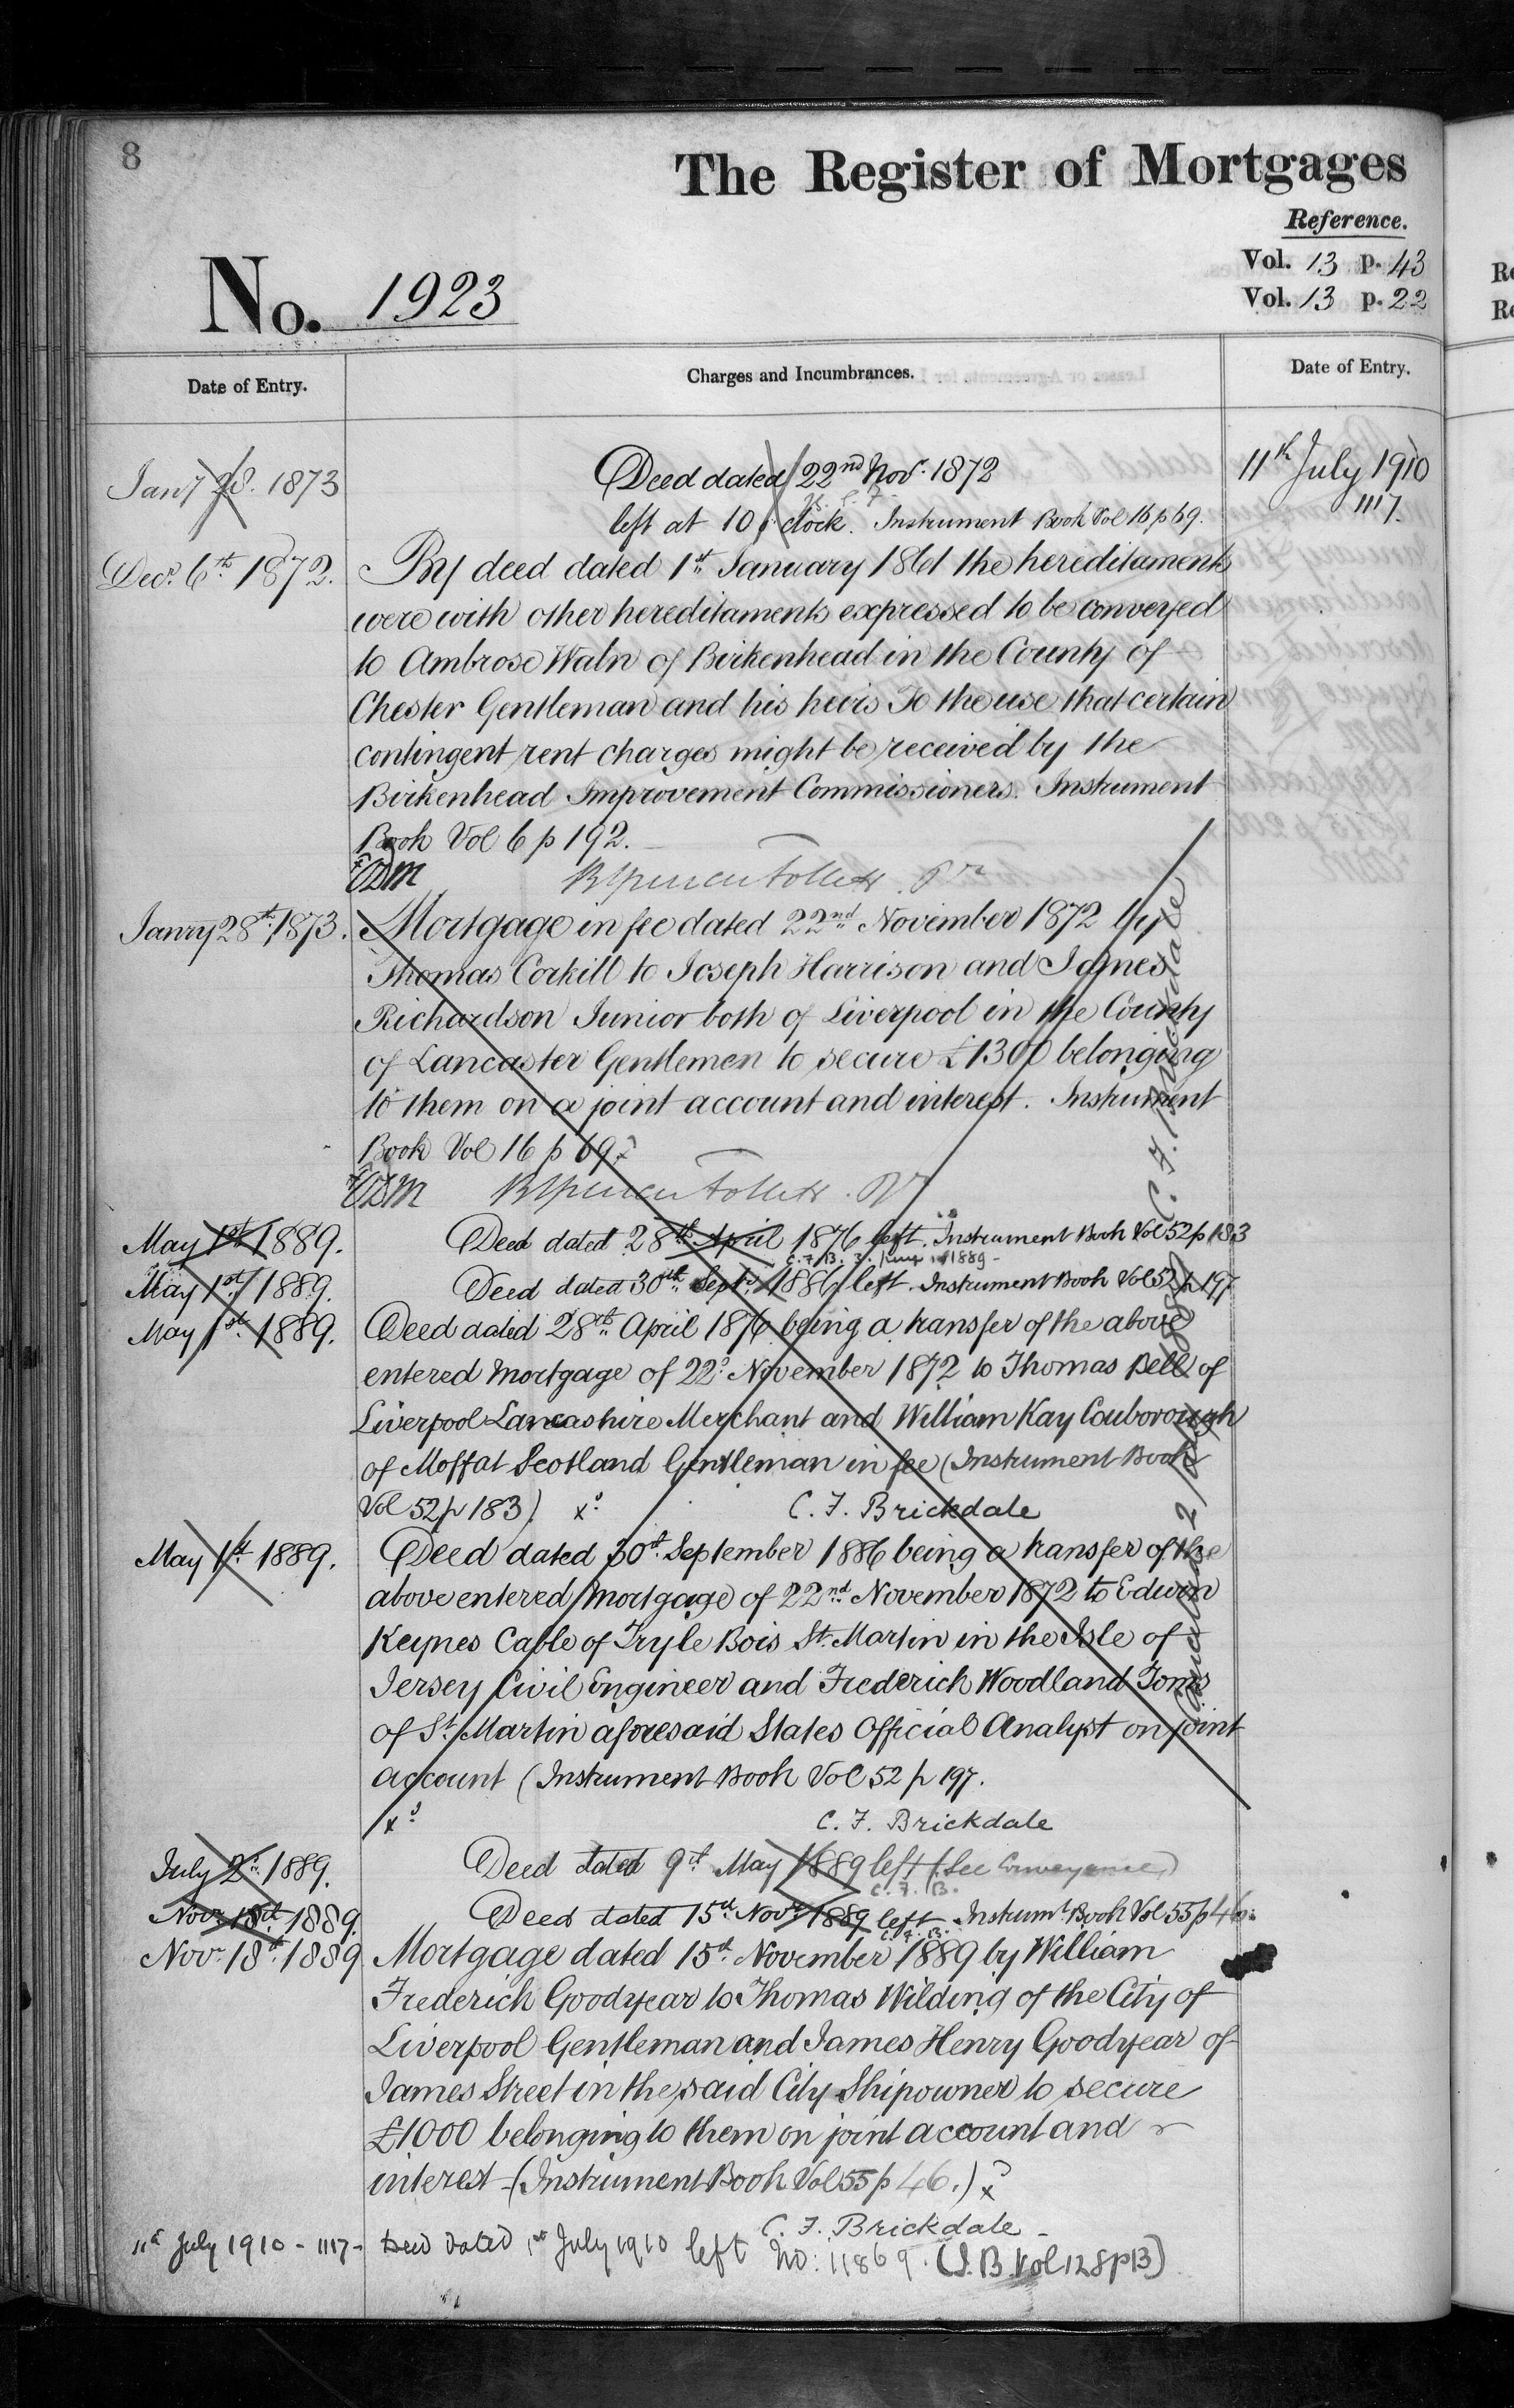 8
The Register of Mortgages
Reference.
Vol. 13 p. 43
Vol. 13 p. 22
No. 1923
Date of Entry.
Charges and Incumbrances.
Date of Entry.
Jany 28. 1873
Deed dated 22nd Nov. 1872
11th July 1910
1117.
left at 10 o'clock. Instrument Book Vol 16 p 69.
Decr. 6th 1872.
By deed dated 1st January 1861 the hereditaments
were with other hereditaments expressed to be conveyed
to Ambrose Waln of Birkenhead in the County of
Chester Gentleman and his heirs To the use that certain
contingent rent charges might be received by the
Birkenhead Improvement Commissioners. Instrument
Book Vol 6 p 192.
Janry 28th 1873.
Mortgage in fee dated 22nd November 1872 by
Thomas Corkill to Joseph Harrison and James
Richardson Junior both of Liverpool in the County
of Lancaster Gentlemen to secure £1300 belonging
to them on a joint account and interest. Instrument
Book Vol 16 p 69.
May 1st 1889.
Deed dated 28th April 1876 left. Instrument Book Vol 52 p 183
C. F. B. 1889
May 1st 1889.
Deed dated 30th Sepr. 1886 left. Instrument Book Vol 52 p 197
May 1st 1889.
Deed dated 28th April 1876 being a transfer of the above
entered mortgage of 22d November 1872 to Thomas Bell of
Liverpool Lancashire Merchant and William Kay Couborough
of Moffat Scotland Gentleman in fee (Instrument Book
Vol 52 p 183) xd
C. F. Brickdale
May 1st 1889.
Deed dated 30th September 1886 being a transfer of the
above entered mortgage of 22nd November 1872 to Edwin
Keynes Cable of Tryle Bois St. Martin in the Isle of
Jersey Civil Engineer and Frederick Woodland Toms
of St. Martin aforesaid States Official Analyst on joint
account (Instrument Book Vol 52 p 197.
xd
C. F. Brickdale
Cancelled 2 July 1889
C. F. Brickdale
July 2d 1889.
Deed dated 9th May 1889 left (See Conveyance)
C. F. B.
Novr 18th 1889.
Deed dated 15th Novr 1889 left. Instrumt. Book Vol 55 p 46.
C. F. B.
Novr 18th 1889
Mortgage dated 15th November 1889 by William
Frederick Goodyear to Thomas Wilding of the City of
Liverpool Gentleman and James Henry Goodyear of
James Street in the said City Shipowner to secure
£1000 belonging to them on joint account and
interest (Instrument Book Vol 55 p 46.) xd
C. F. Brickdale
11th July 1910 - 1117 -
Deed dated 1st July 1910 left No: 11869. (I. B. Vol 128 p 13)